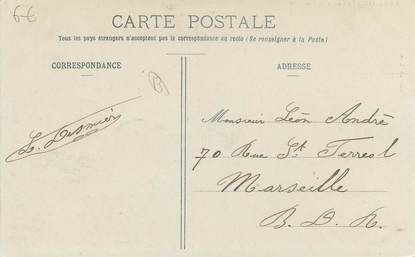 6-6
CARTE POSTALE
Tous les pays étrangers n'acceptent pas la correspondance au recto (Se renseigner à la Poste)
CORRESPONDANCE
ADRESSE
L. Desmier
Monsieur Léon André
70 Rue St. Ferreol
Marseille
B. D. R.